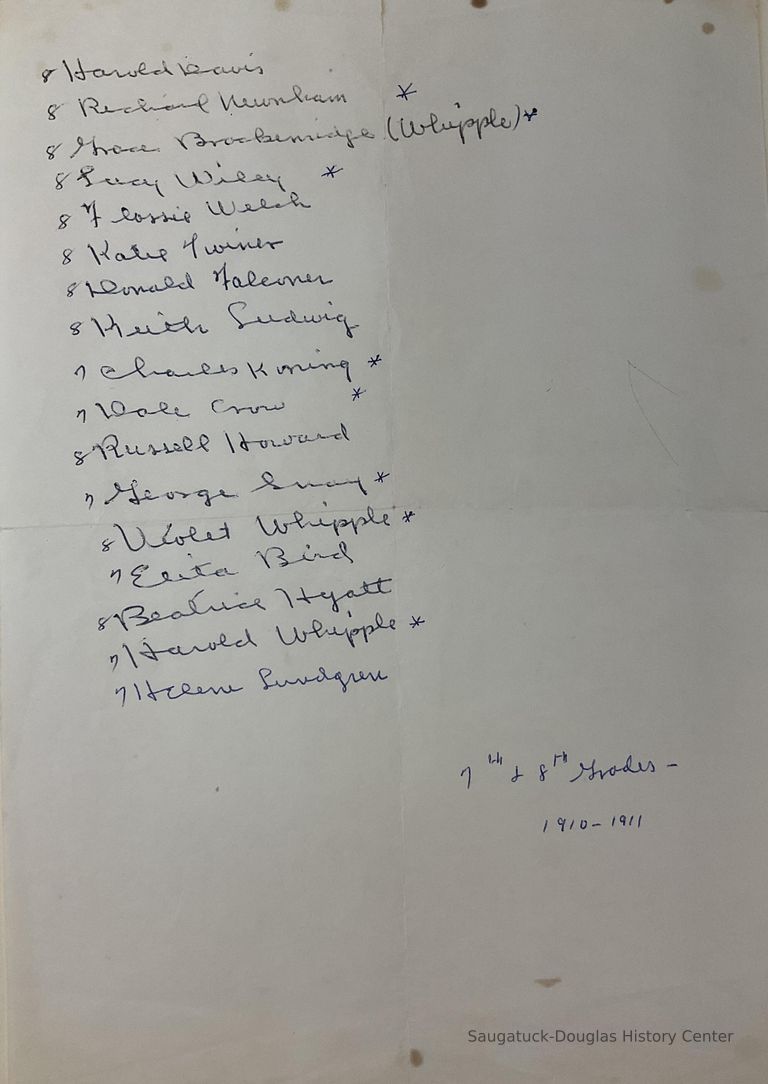 8 Harold Davis
8 Richard Newnham *
8 Grace Brockenridge (Whipple) *
8 Lucy Wiley *
8 Flossie Welch
8 Katie Twiner
8 Donald Falconer
8 Keith Ludwig
7 Charles Koning *
7 Dale Crow *
8 Russell Howard
7 George *
8 Violet Whipple *
7 Bird
8 Beatrice Hyatt
7 Harold Whipple *
7 Helene Lundgren
7th & 8th Grades -
1910-1911
Saugatuck-Douglas History Center